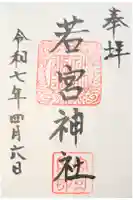 奉拝
若宮神社
令和七年四月六日